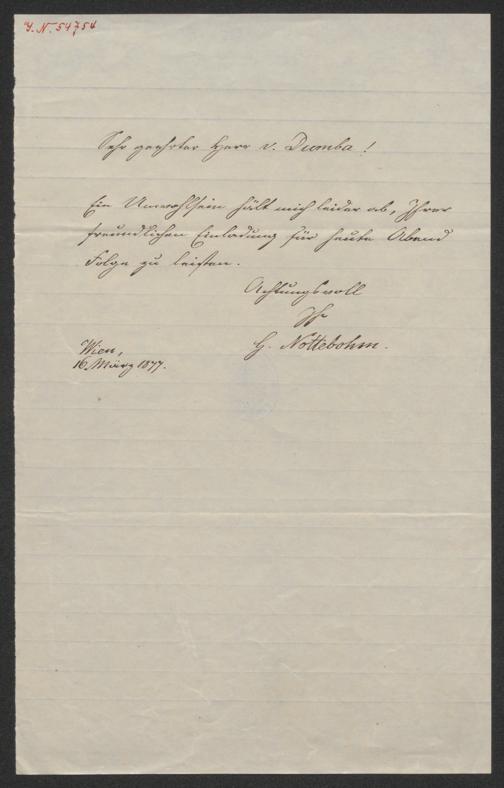 I. N. 54754
Sehr geehrter Herr v. Dumba!
Ein Unwohlsein hält mich leider ab, Ihrer
freundlichen Einladung für heute Abend
Folge zu leisten.
Achtungsvoll
Ihr
G. Nottebohm.
Wien,
16. März 1877.